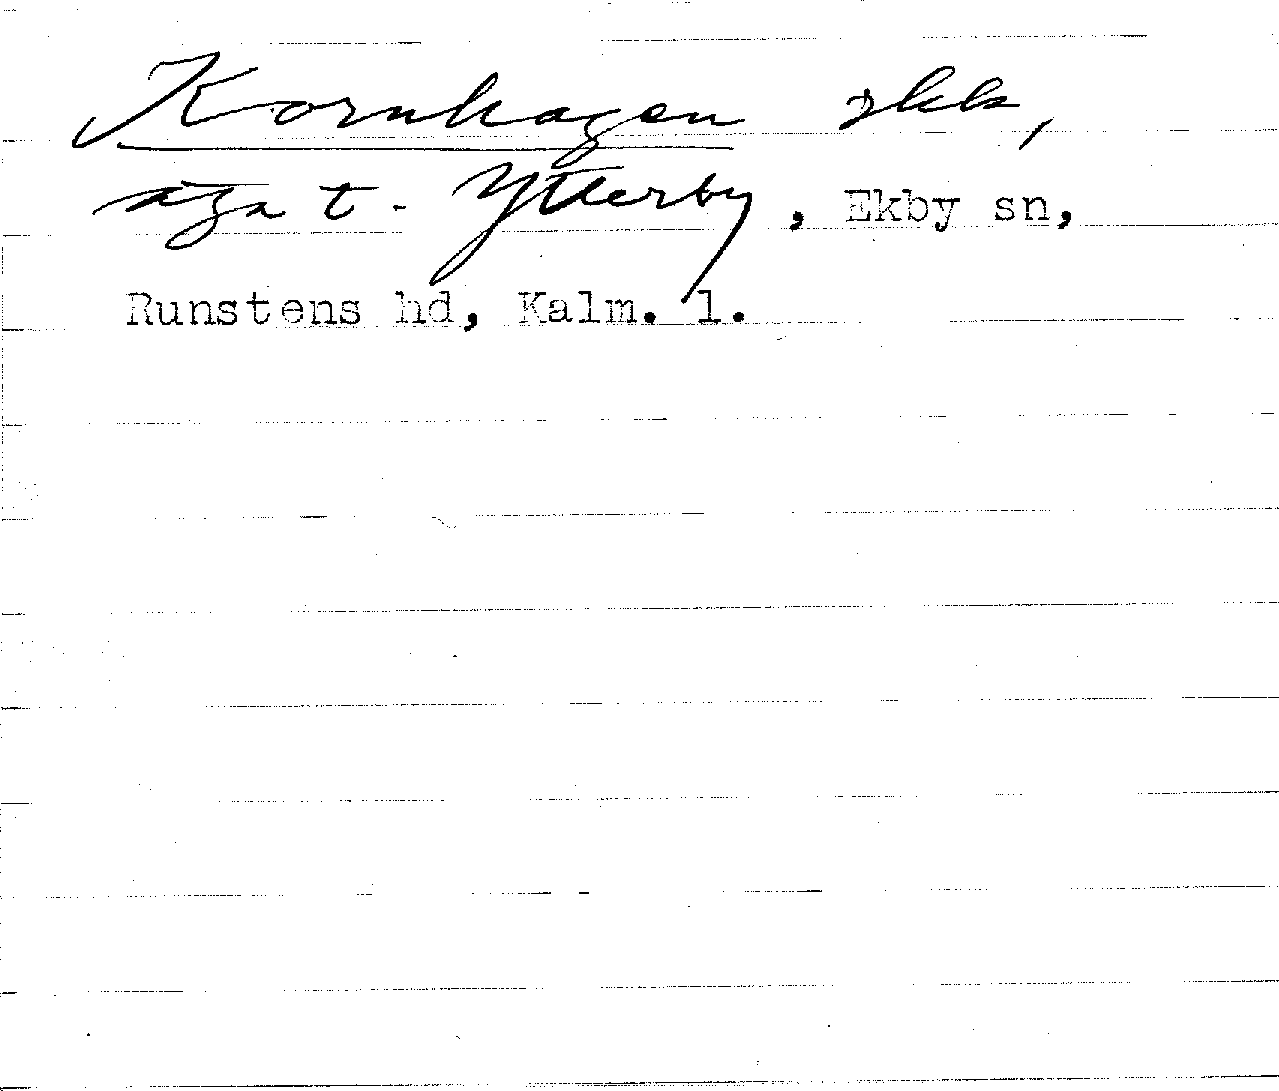 Kornhagen skk,
äga t. Ytterby, Ekby sn,
Runstens hd, Kalm. l.